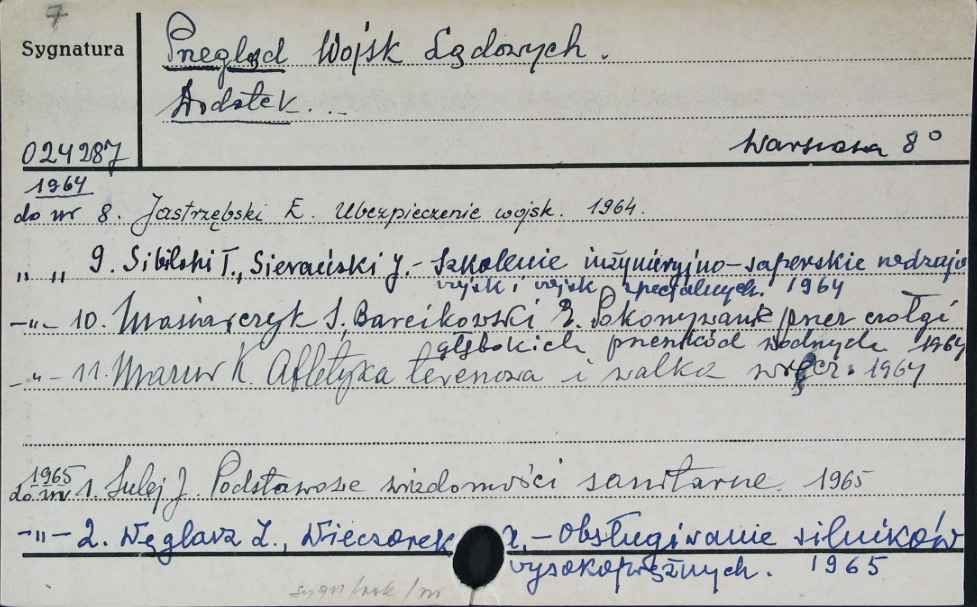 7
Sygnatura
Przegląd Wojsk Lądowych.
Dodatek...
024287
Warszawa 8°
1964
do nr 8. Jastrzębski E. Ubezpieczenie wojsk. 1964.
" " 9. Sibilski T., Sieraciński J.- Szkolenie inżynieryjno-saperskie rodzajów
wojsk i wojsk specjalnych. 1964
-"- 10. Masiarczyk S, Barcikowski E. Pokonywanie przez czołgi
głębokich przeszkód wodnych 1964
-"- 11. Mazur K. Atletyka terenowa i walka wręcz. 1964
1965
do nr 1. Sulej J. Podstawowe wiadomości sanitarne. 1965
-"- 2. Węglarz Z., Wieczorek Z.- Obsługiwanie silników
wysokoprężnych. 1965
sygn/rok/nr